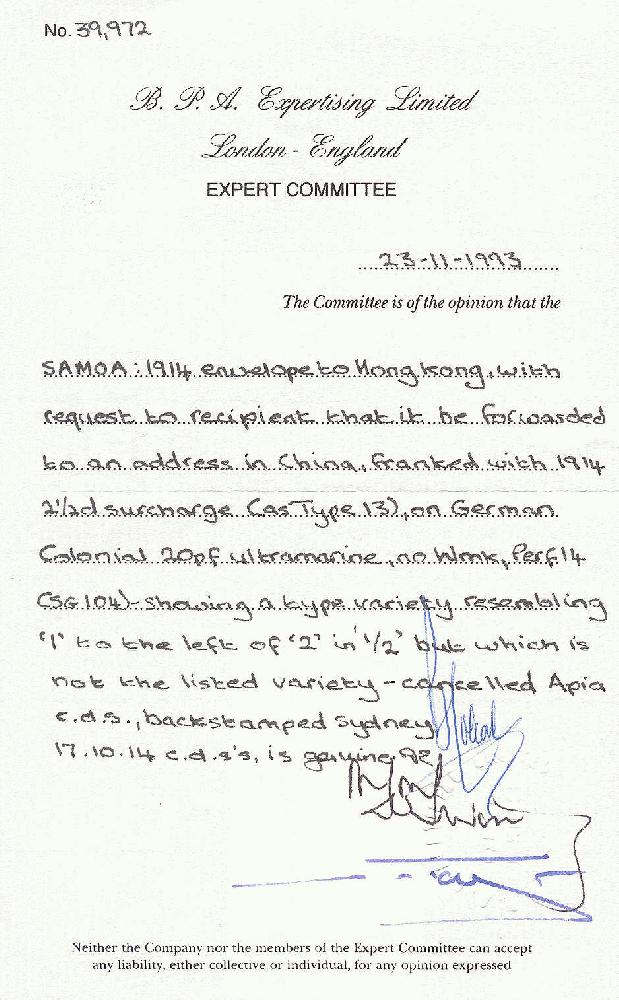 No. 39,972
B. P. A. Expertising Limited
London - England
EXPERT COMMITTEE
23-11-1993
The Committee is of the opinion that the
SAMOA: 1914 envelope to Hong Kong, with
request to recipient that it be forwarded
to an address in China, franked with 1914
2½d surcharge (as Type 13), on German
Colonial 20pf ultramarine, no Wmk, Perf 14
(SG 104) - showing a type variety resembling
'1' to the left of '2' in '1/2' but which is
not the listed variety - cancelled Apia
c.d.s., backstamped Sydney
17.10.14 c.d.s's, is genuine
Neither the Company nor the members of the Expert Committee can accept
any liability, either collective or individual, for any opinion expressed